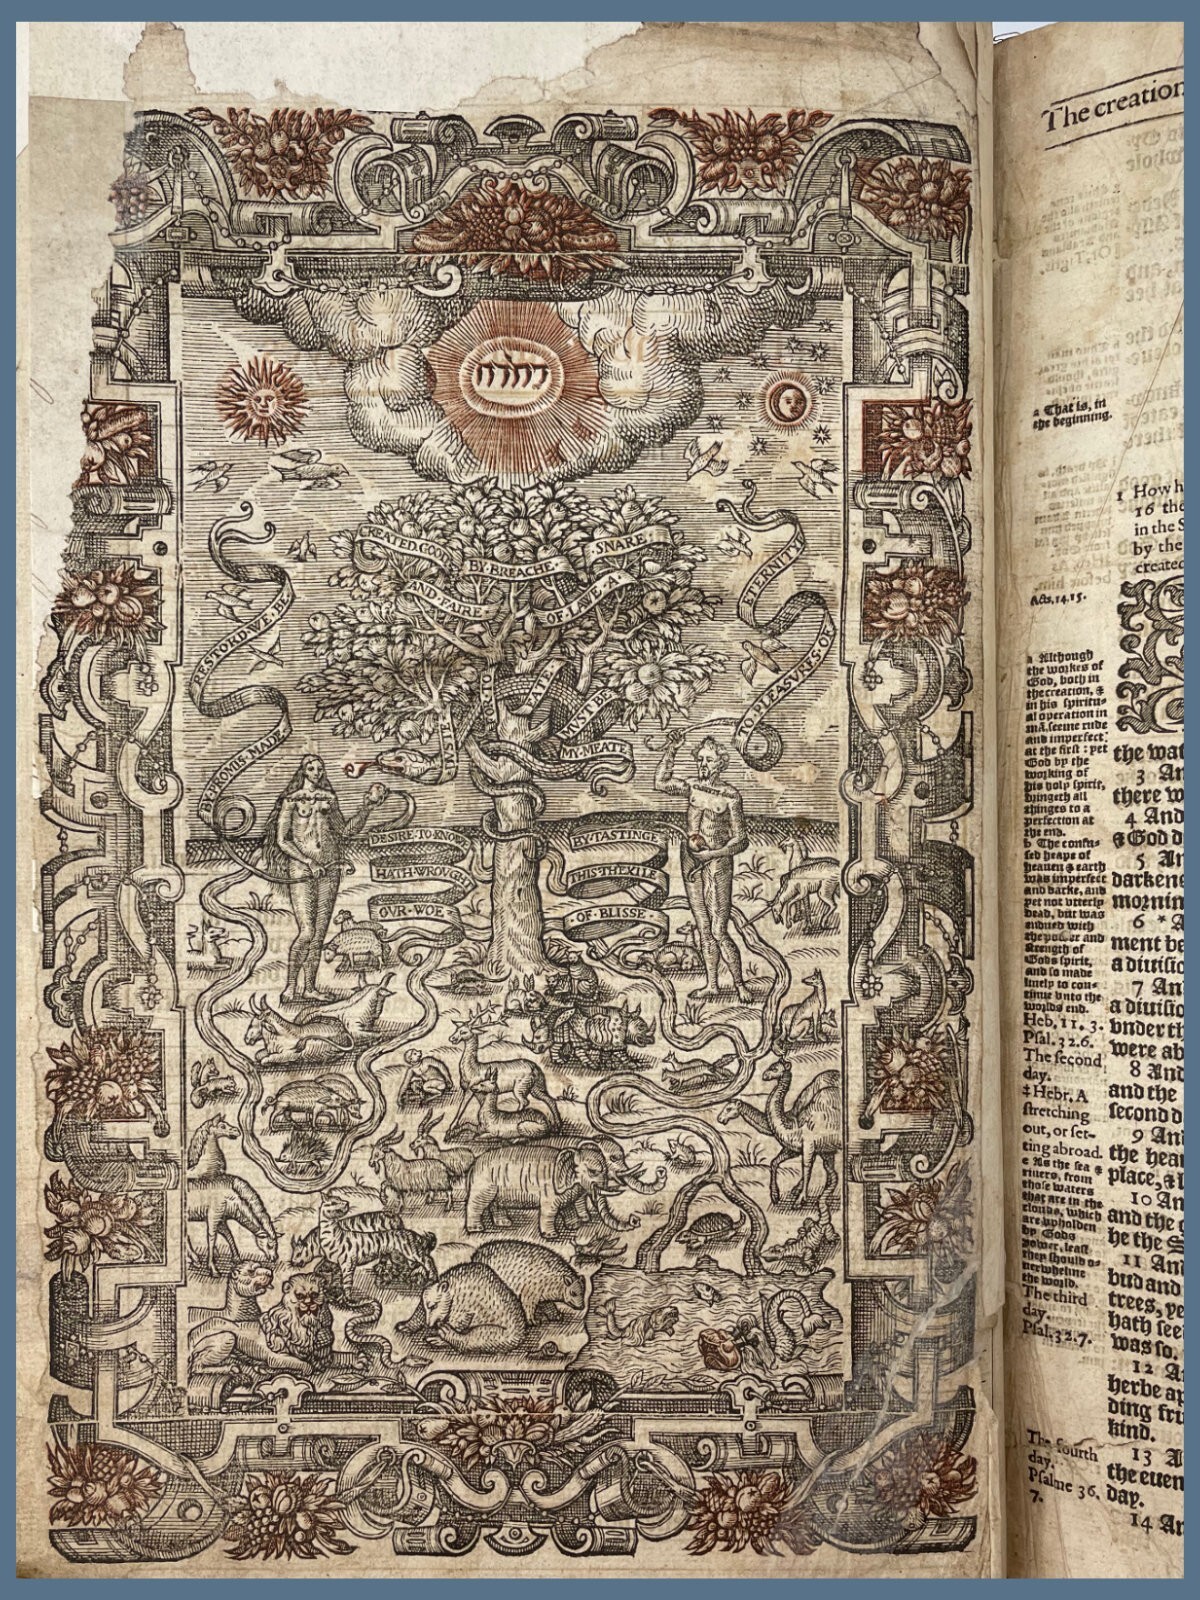 יהוה
CREATED.GOOD
AND.FAIRE
BY.BREACHE
OF.LAWE.A
SNARE
BY.PROMIS.MADE
RESTORD.WE.BE
TO.PLEASVRES.OF
ETERNITY
DVST
TO
EATE
MVST BE
MY.MEATE
DESIRE.TO.KNOWE
HATH.WROVGHT
OVR.WOE
BY.TASTINGE
THIS.THEXILE
OF.BLISSE
The creation
a That is, in
the beginning.
Acts.14.15.
a Although
the workes of
God, both in
the creation, &
in his spiritu-
al operation in
mã, seeme rude
and imperfect
at the first : yet
God by the
working of
his holy spirit,
bringeth all
thinges to a
perfection at
the end.
b The confu-
sed heape of
heauen & earth
was imperfect
and darke, and
yet not vtterly
dead, but was
endued with
the power and
strength of
Gods spirit,
and so made
liuely to con-
tinue vnto the
worlds end.
Heb.11.3.
Psal.32.6.
The second
day.
‡ Hebr. A
stretching
out, or set-
ting abroad.
c As the sea &
riuers, from
those waters
that are in the
cloudes, which
are vpholden
by Gods
power, least
they should o-
uerwhelme
the world.
The third
day.
Psal.32.7.
The fourth
day.
Psalme 36.
7.
1 How h
16 the
in the S
by the
created
the wat
3 An
there w
4 And
& God d
5 An
darkene
mornin
6 * A
ment be
a diuisiõ
7 An
a diuisiõ
vnder th
were ab
8 And
and the
second d
9 An
the hea
place, & l
10 An
and the g
he the S
11 An
bud and
trees, ye
hath see
was so.
12 A
herbe ap
ding frui
kind.
13 A
the euen
day.
14 An